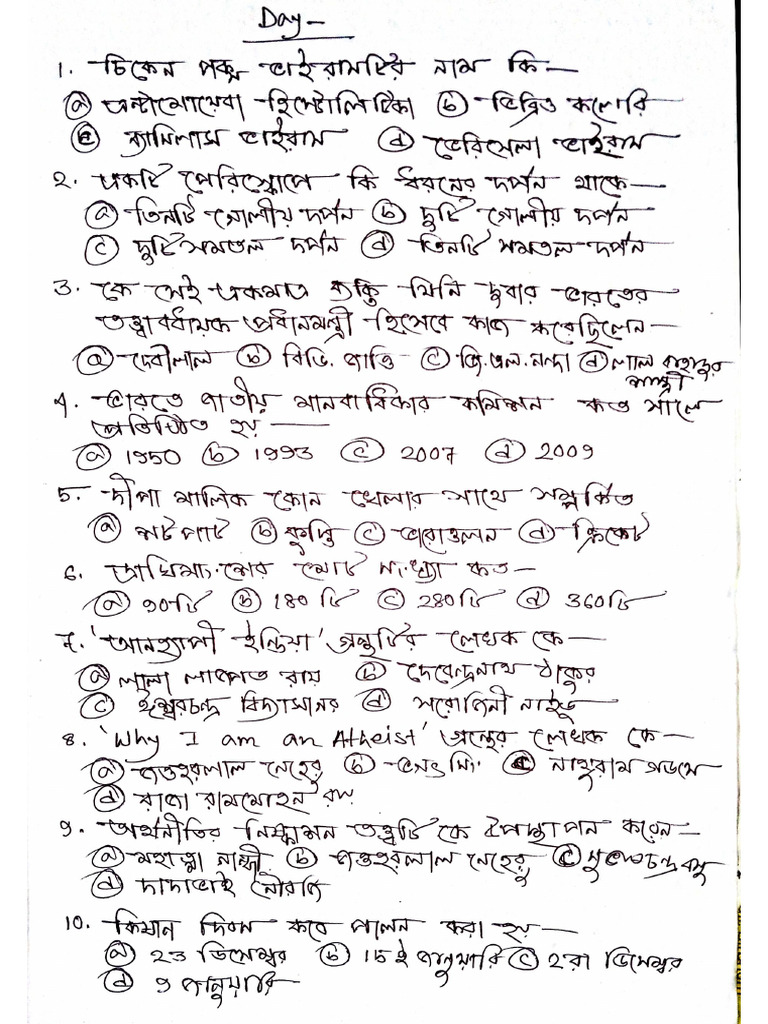 Day -
1. চিকেন পক্স ভাইরাসটির নাম কি —
ⓐ এন্টামোয়েবা হিস্টোলিটিকা ⓑ ভিব্রিও কলেরি
ⓒ ব্যাসিলাস ভাইরাস ⓓ ভেরিসেলা ভাইরাস
২. একটি পেরিস্কোপে কি ধরনের দর্পন থাকে —
ⓐ তিনটি গোলীয় দর্পন ⓑ দুটি গোলীয় দর্পন
ⓒ দুটি সমতল দর্পন ⓓ তিনটি সমতল দর্পন
3. কে সেই একমাত্র ব্যক্তি যিনি দুবার ভারতের
তত্ত্বাবধায়ক প্রধানমন্ত্রী হিসেবে কাজ করেছিলেন —
ⓐ দেবীলাল ⓑ বিডি. জাত্তি ⓒ জি.এল.নন্দা ⓓ লাল বাহাদুর
শাস্ত্রী
4. ভারতে জাতীয় মানবাধিকার কমিশন কত সালে
প্রতিষ্ঠিত হয় —
ⓐ 1950 ⓑ 1993 ⓒ 2007 ⓓ 2009
5. দীপা মালিক কোন খেলার সাথে সম্পর্কিত
ⓐ শট পাট ⓑ কুস্তি ⓒ ভারোত্তলন ⓓ ক্রিকেট
6. দ্রাঘিমাংশের মোট সংখ্যা কত -
ⓐ 90টি ⓑ 180 টি ⓒ 280টি ⓓ 360টি
7. 'আনহ্যাপী ইন্ডিয়া' গ্রন্থটির লেখক কে —
ⓐ লালা লাজপত রায় ⓑ দেবেন্দ্রনাথ ঠাকুর
ⓒ ঈশ্বরচন্দ্র বিদ্যাসাগর ⓓ সরোজিনী নাইডু
8. 'Why I am an Atheist' গ্রন্থের লেখক কে —
ⓐ জওহরলাল নেহেরু ⓑ ভগৎ সিং ⓒ নাথুরাম গডসে
ⓓ রাজা রামমোহন রায়
9. অর্থনীতির নিষ্কাশন তত্ত্বটি কে উপস্থাপন করেন —
ⓐ মহাত্মা গান্ধী ⓑ জওহরলাল নেহেরু ⓒ সুভাষচন্দ্র বসু
ⓓ দাদাভাই নৌরজি
10. কিষান দিবস কবে পালন করা হয় —
ⓐ 23 ডিসেম্বর ⓑ 15 ই জানুয়ারি ⓒ 2রা ডিসেম্বর
ⓓ 9 জানুয়ারি